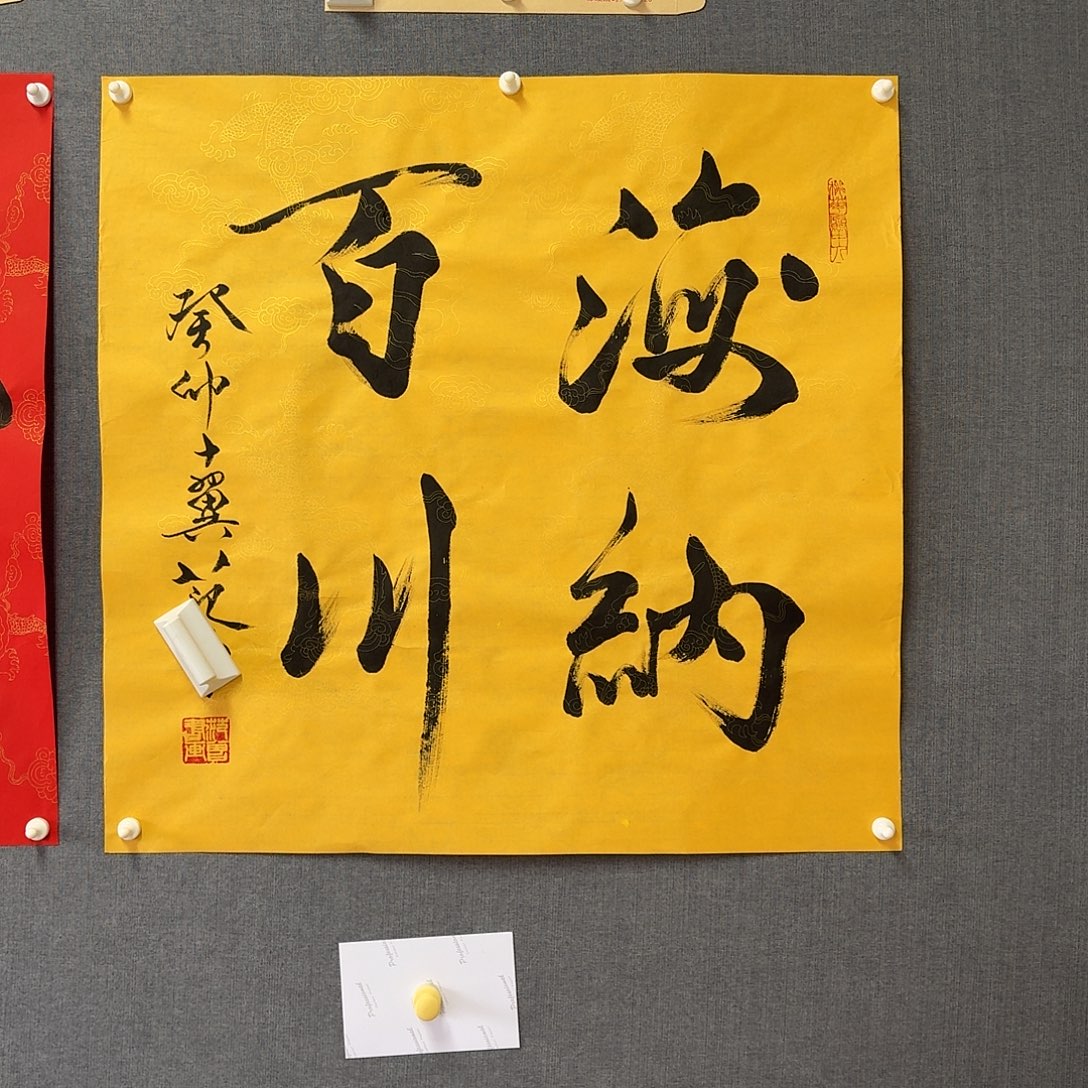 海納
百川
癸卯十翼范